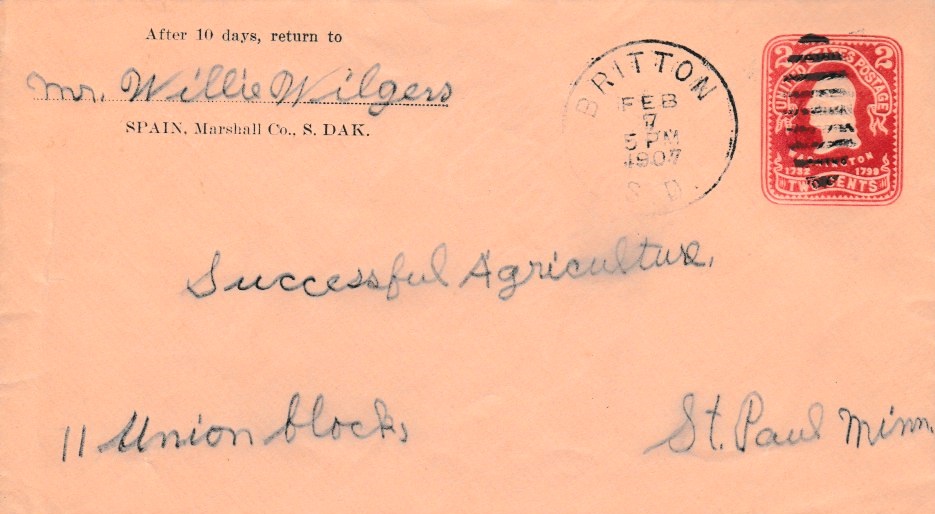 After 10 days, return to
Mr. Willie Wilgers
SPAIN, Marshall Co., S. DAK.
BRITTON
FEB
7
5 PM
1907
S.D.
2 UNITED STATES POSTAGE 2
WASHINGTON
1732 1799
TWO CENTS
Successful Agriculture,
11 Union block,
St. Paul Minn.